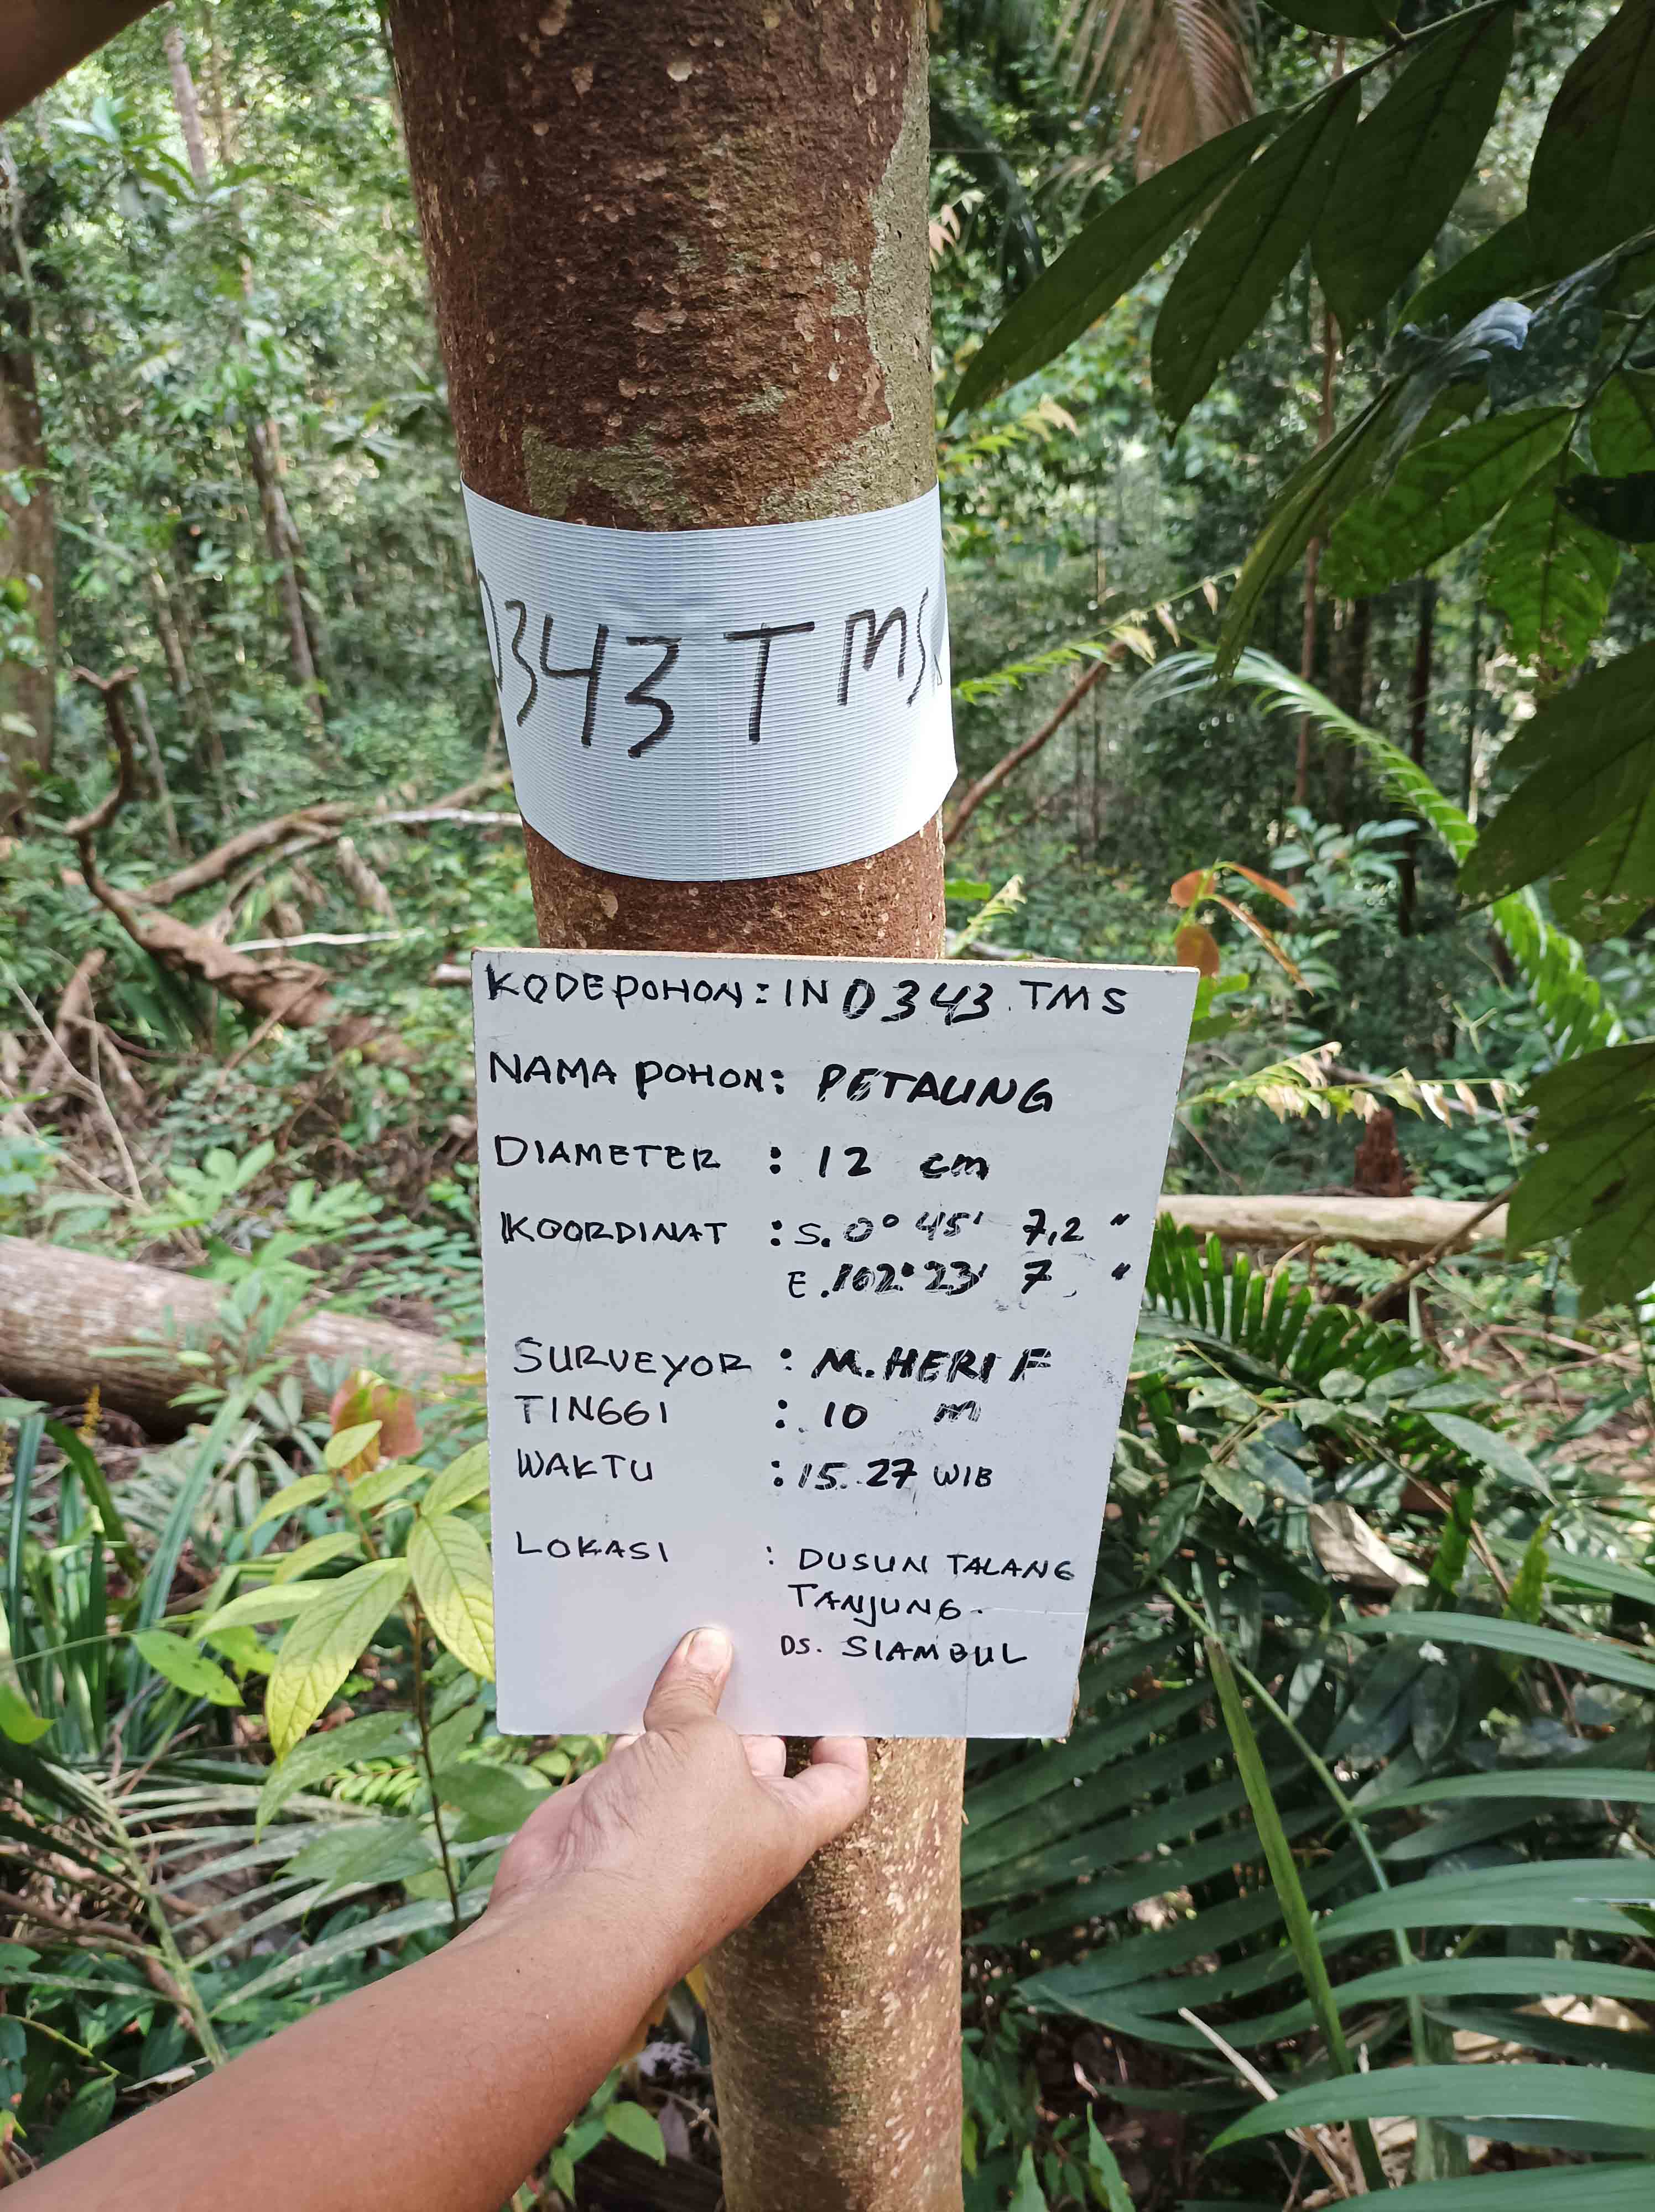 0343 TMS
KODE POHON : IN 0343 TMS
NAMA POHON : PETALING
DIAMETER : 12 cm
KOORDINAT : S. 0° 45' 7,2 "
E. 102° 23' 7 "
SURVEYOR : M. HERI F
TINGGI : 10 m
WAKTU : 15. 27 WIB
LOKASI : DUSUN TALANG
TANJUNG.
DS. SIAMBUL